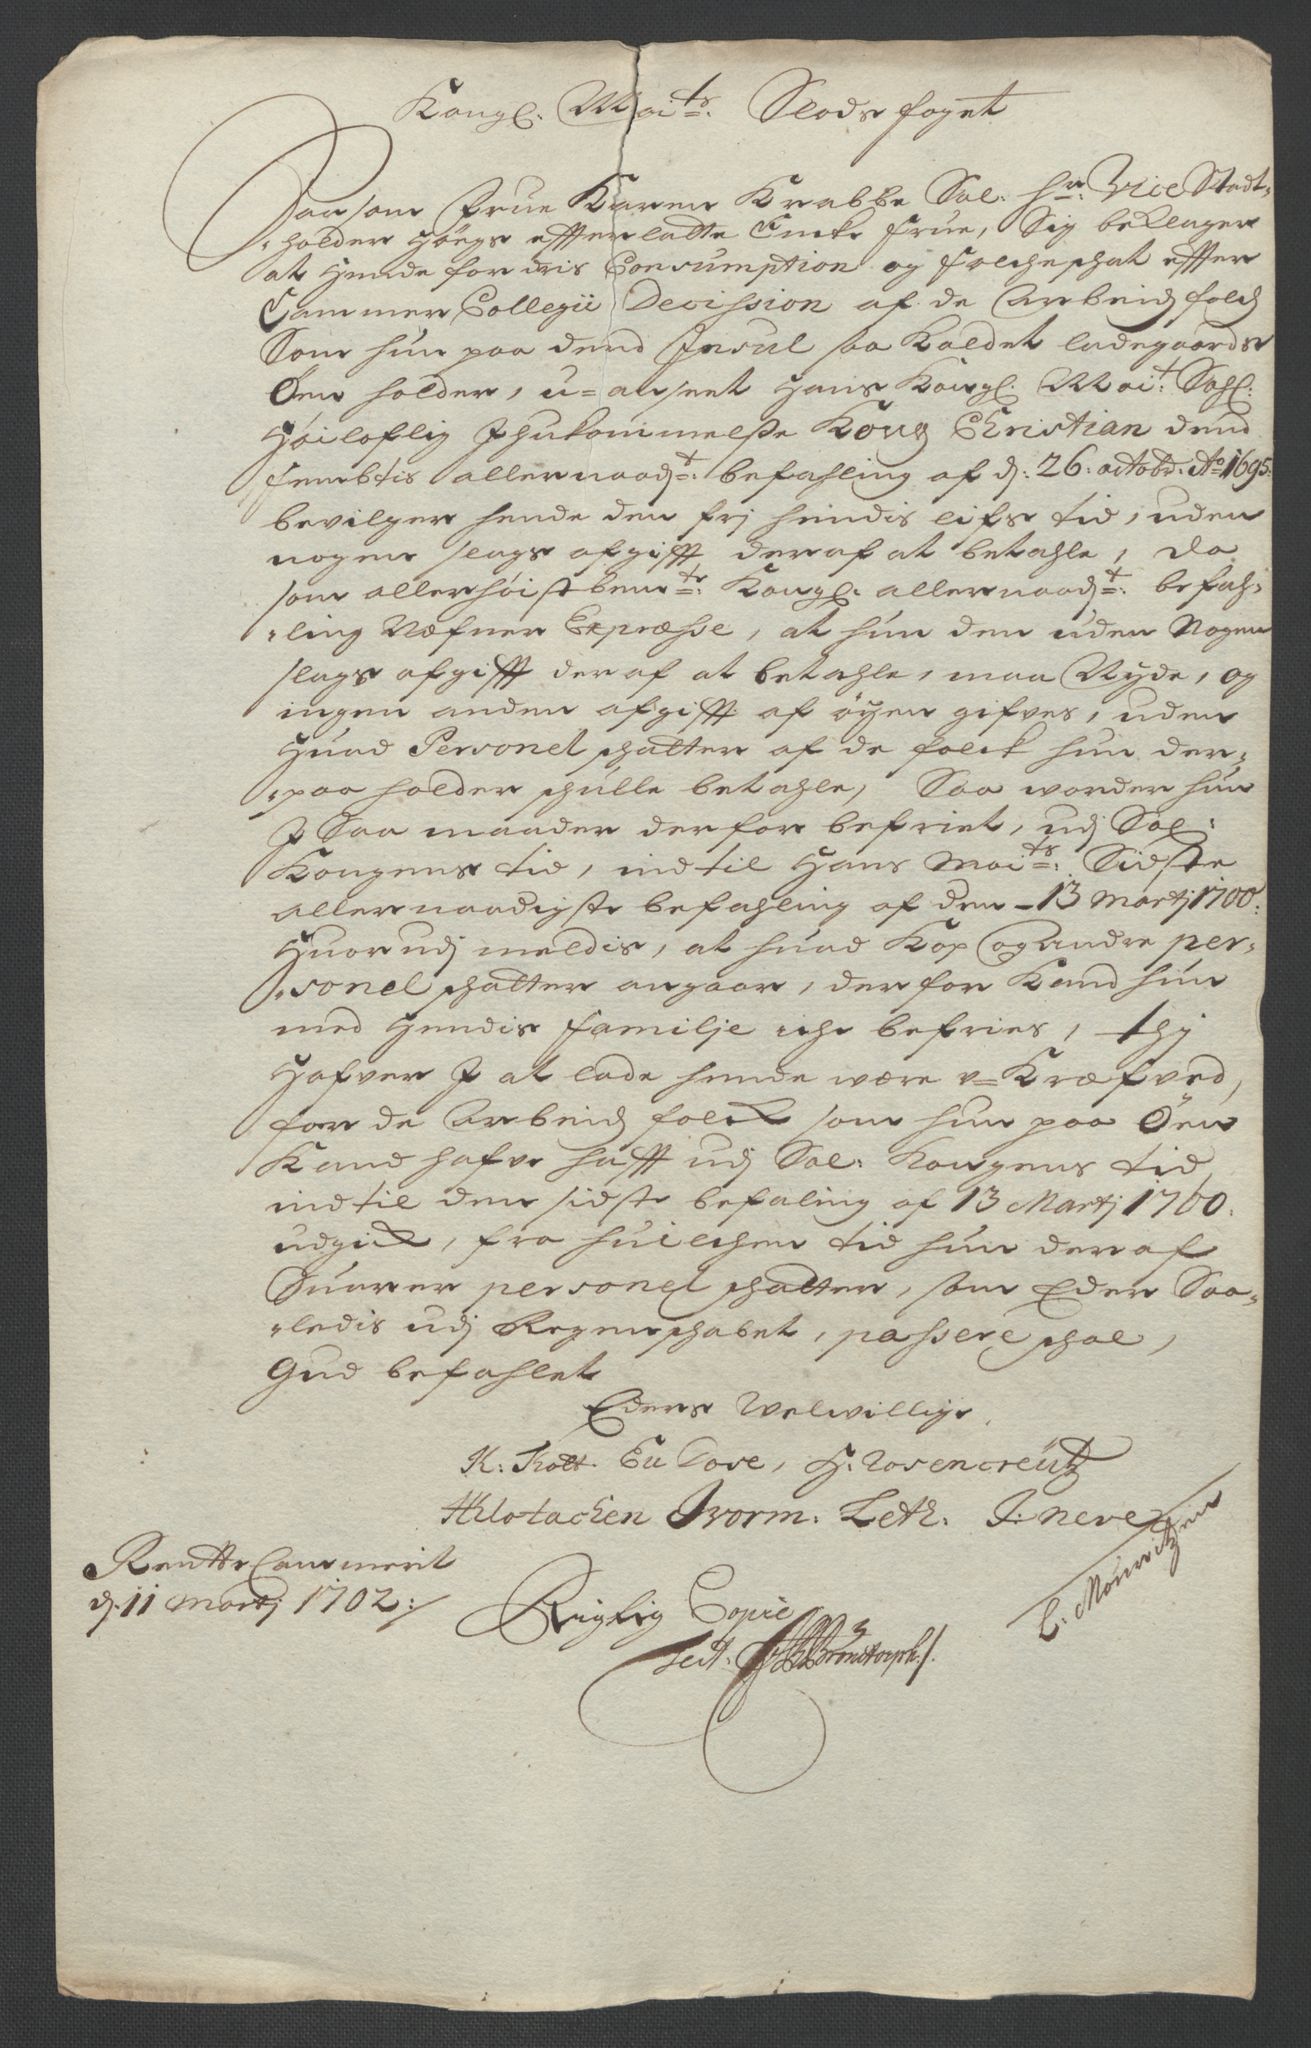 Kongl: Maits: Slods foget
Saasom Frue Karen Krabbe Sal: Hr: Vice Stadt-
holder Høegs effterladte Encke Frue, Sig beklager
at Hende fordris Consumption og Folcheschat effter
Cammer Collegii Decission af de Arbeids folch
Som hun paa dend Insul saa kaldet ladegaards
Øen holder, u-anseet Hans Kongl: Mait: Sahl:
Høiloflig Ihukommelse Kong Christian dend
Fembtis allernaadt: befahling af d: 26: octobr: Ao 1695:
bevilger hende den frj hendis lifs tid, uden
nogen slags afgifft deraf at betahle, da
som allerhøistbemte: Kongl: allernaadt: befah-
ling Næfner Expræsse, at hun den uden Nogen
slags afgifft deraf at betahle, maa Nyde, og
ingen anden afgifft af øyen gifves, uden
Huad Personel schatter af de folck hun der-
paa holder schulle betahle, Saa worder hun
I Saa maader derfor befriet, udj Sal:
Kongens tid, indtil Hans Maits: Sidste
allernaadigste befahling af den 13 Martj 1700:
Huorudj meldis, at huad Kop og Andre per-
sonel schatter angaar, derfor Kand hun
med Hendis Familje iche befries, thj
Hafver I at lade hende være u-Kræfved,
for de Arbeids folck som hun paa Øen
Kand hafve hafft udj Sal: Kongens tid
indtil den sidste befaling af 13 Martj 1700:
udgick, fra huilchen tid hun deraf
Suarer personel schatter, som Eder Saa-
ledis udj Regenschabet, passere schal,
Gud befahlet
Eders Velvillige
K: Kott. En Dose, H: Rosencreütz
Klotacken Worm. Leth. J: Neve
C: Mouritzen
Rentte Cammerit
d. 11 Martj 1702:/
Rigtig Copie
test.